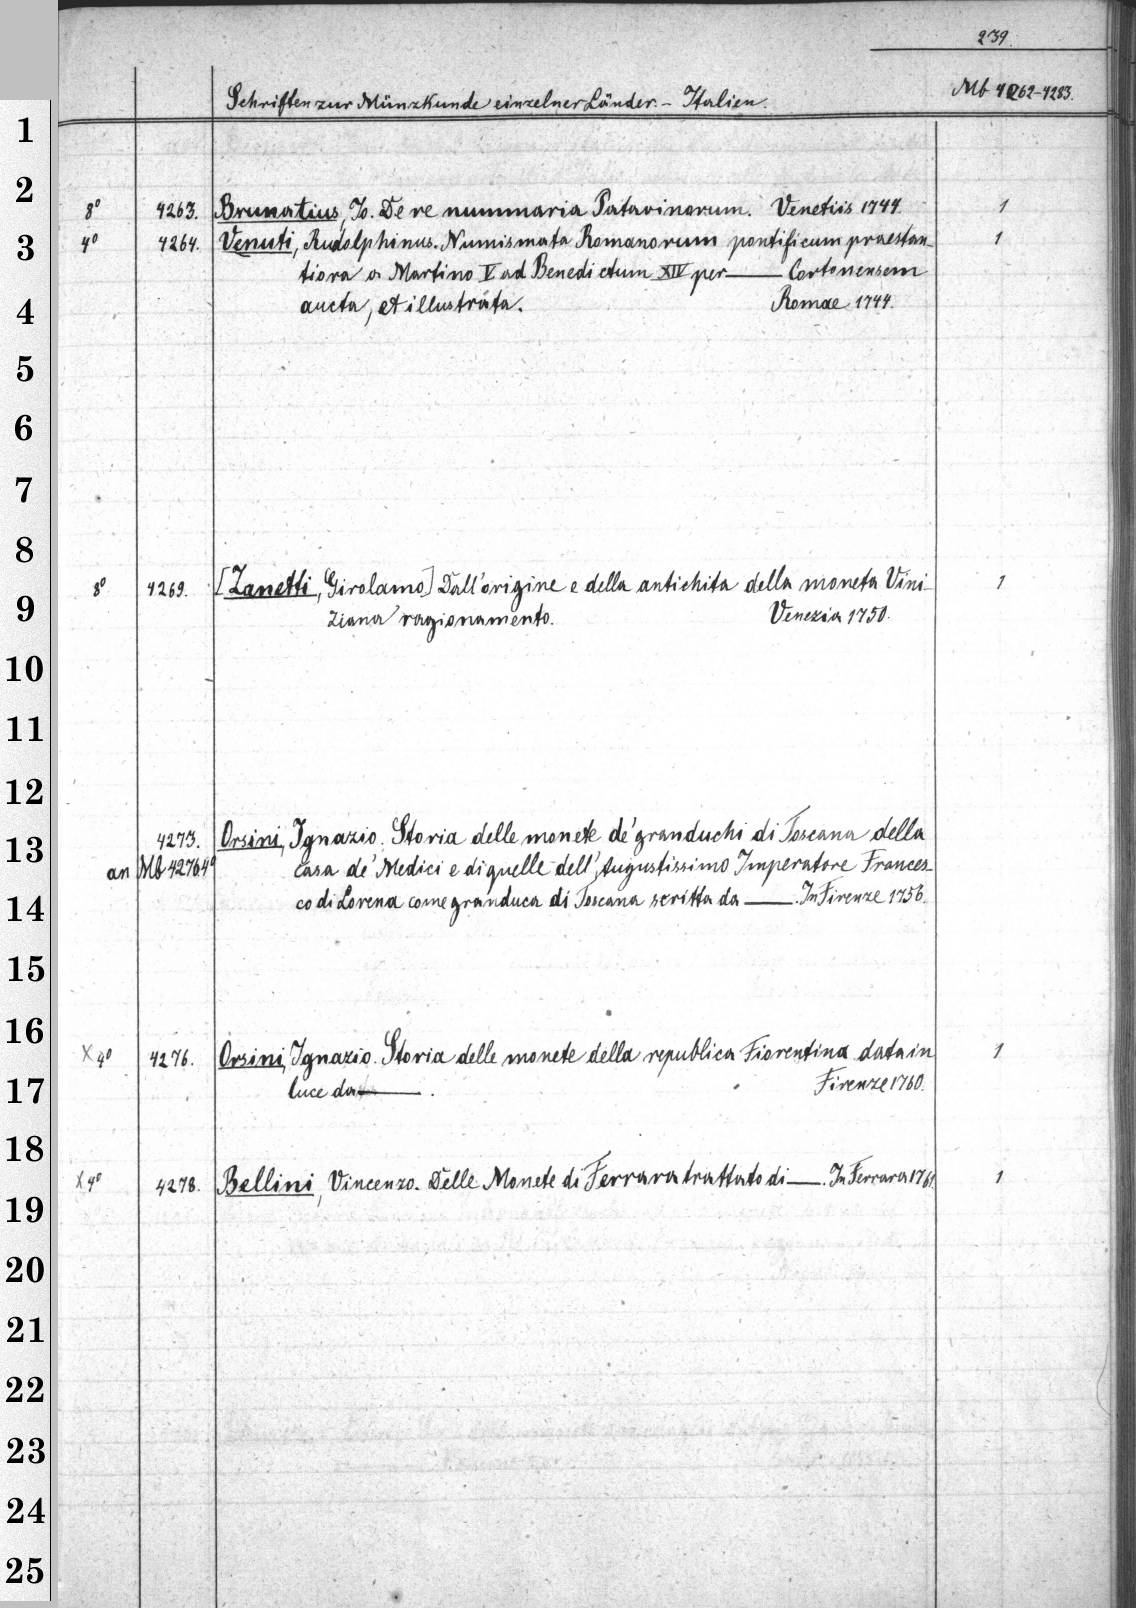 239.
Schriften zur Münzkunde einzelner Länder. - Italien. Mb 4262-4283.
1
2
8° 4263. Brunatius, Jo. De re nummaria Patavinorum. Venetiis 1744. 1
3
4° 4264. Venuti, Rudolphinus. Numismata Romanorum pontificum praestan- 1
tiora a Martino V ad Benedictum XIV per —— Cortonensem
4
aucta, et illustrata. Romae 1744.
5
6
7
8
8° 4269. [Zanetti, Girolamo] Dall'origine e della antichita della moneta Vini- 1
9
ziana ragionamento. Venezia 1750.
10
11
12
4273. Orsini, Ignazio. Storia delle monete de' granduchi di Toscana della
13
an Mb 4276 4° casa de' Medici e di quelle dell' Augustissimo Imperatore Frances-
14
co di Lorena come granduca di Toscana scritta da ——. In Firenze 1756.
15
16
X 4° 4276. Orsini, Ignazio. Storia delle monete della republica Fiorentina data in 1
17
luce da ——. Firenze 1760.
18
X 4° 4278. Bellini, Vincenzo. Delle Monete di Ferrara trattato di ——. In Ferrara 1761. 1
19
20
21
22
23
24
25